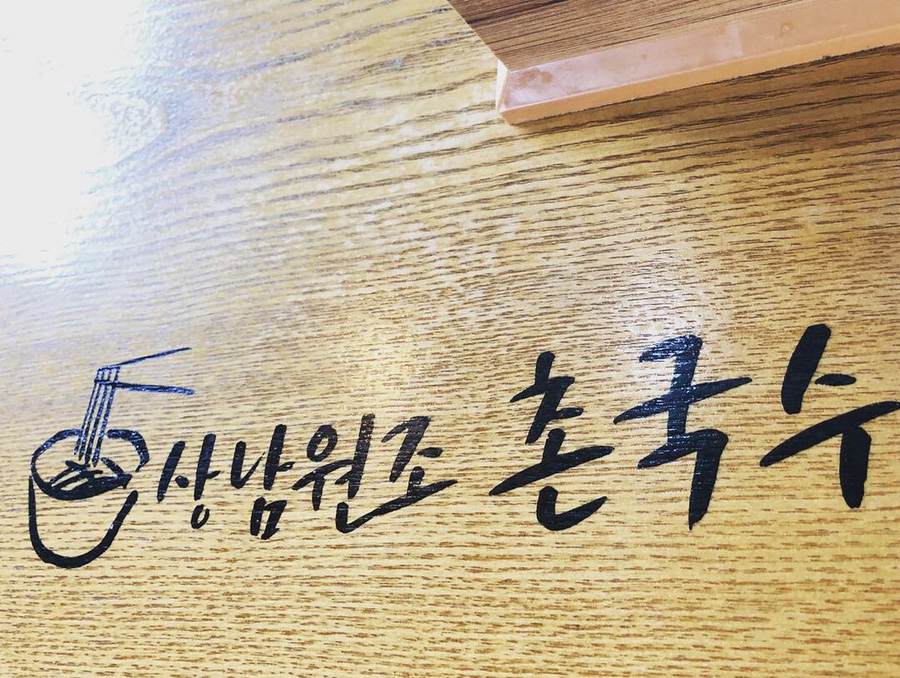 상남원조 촌국수